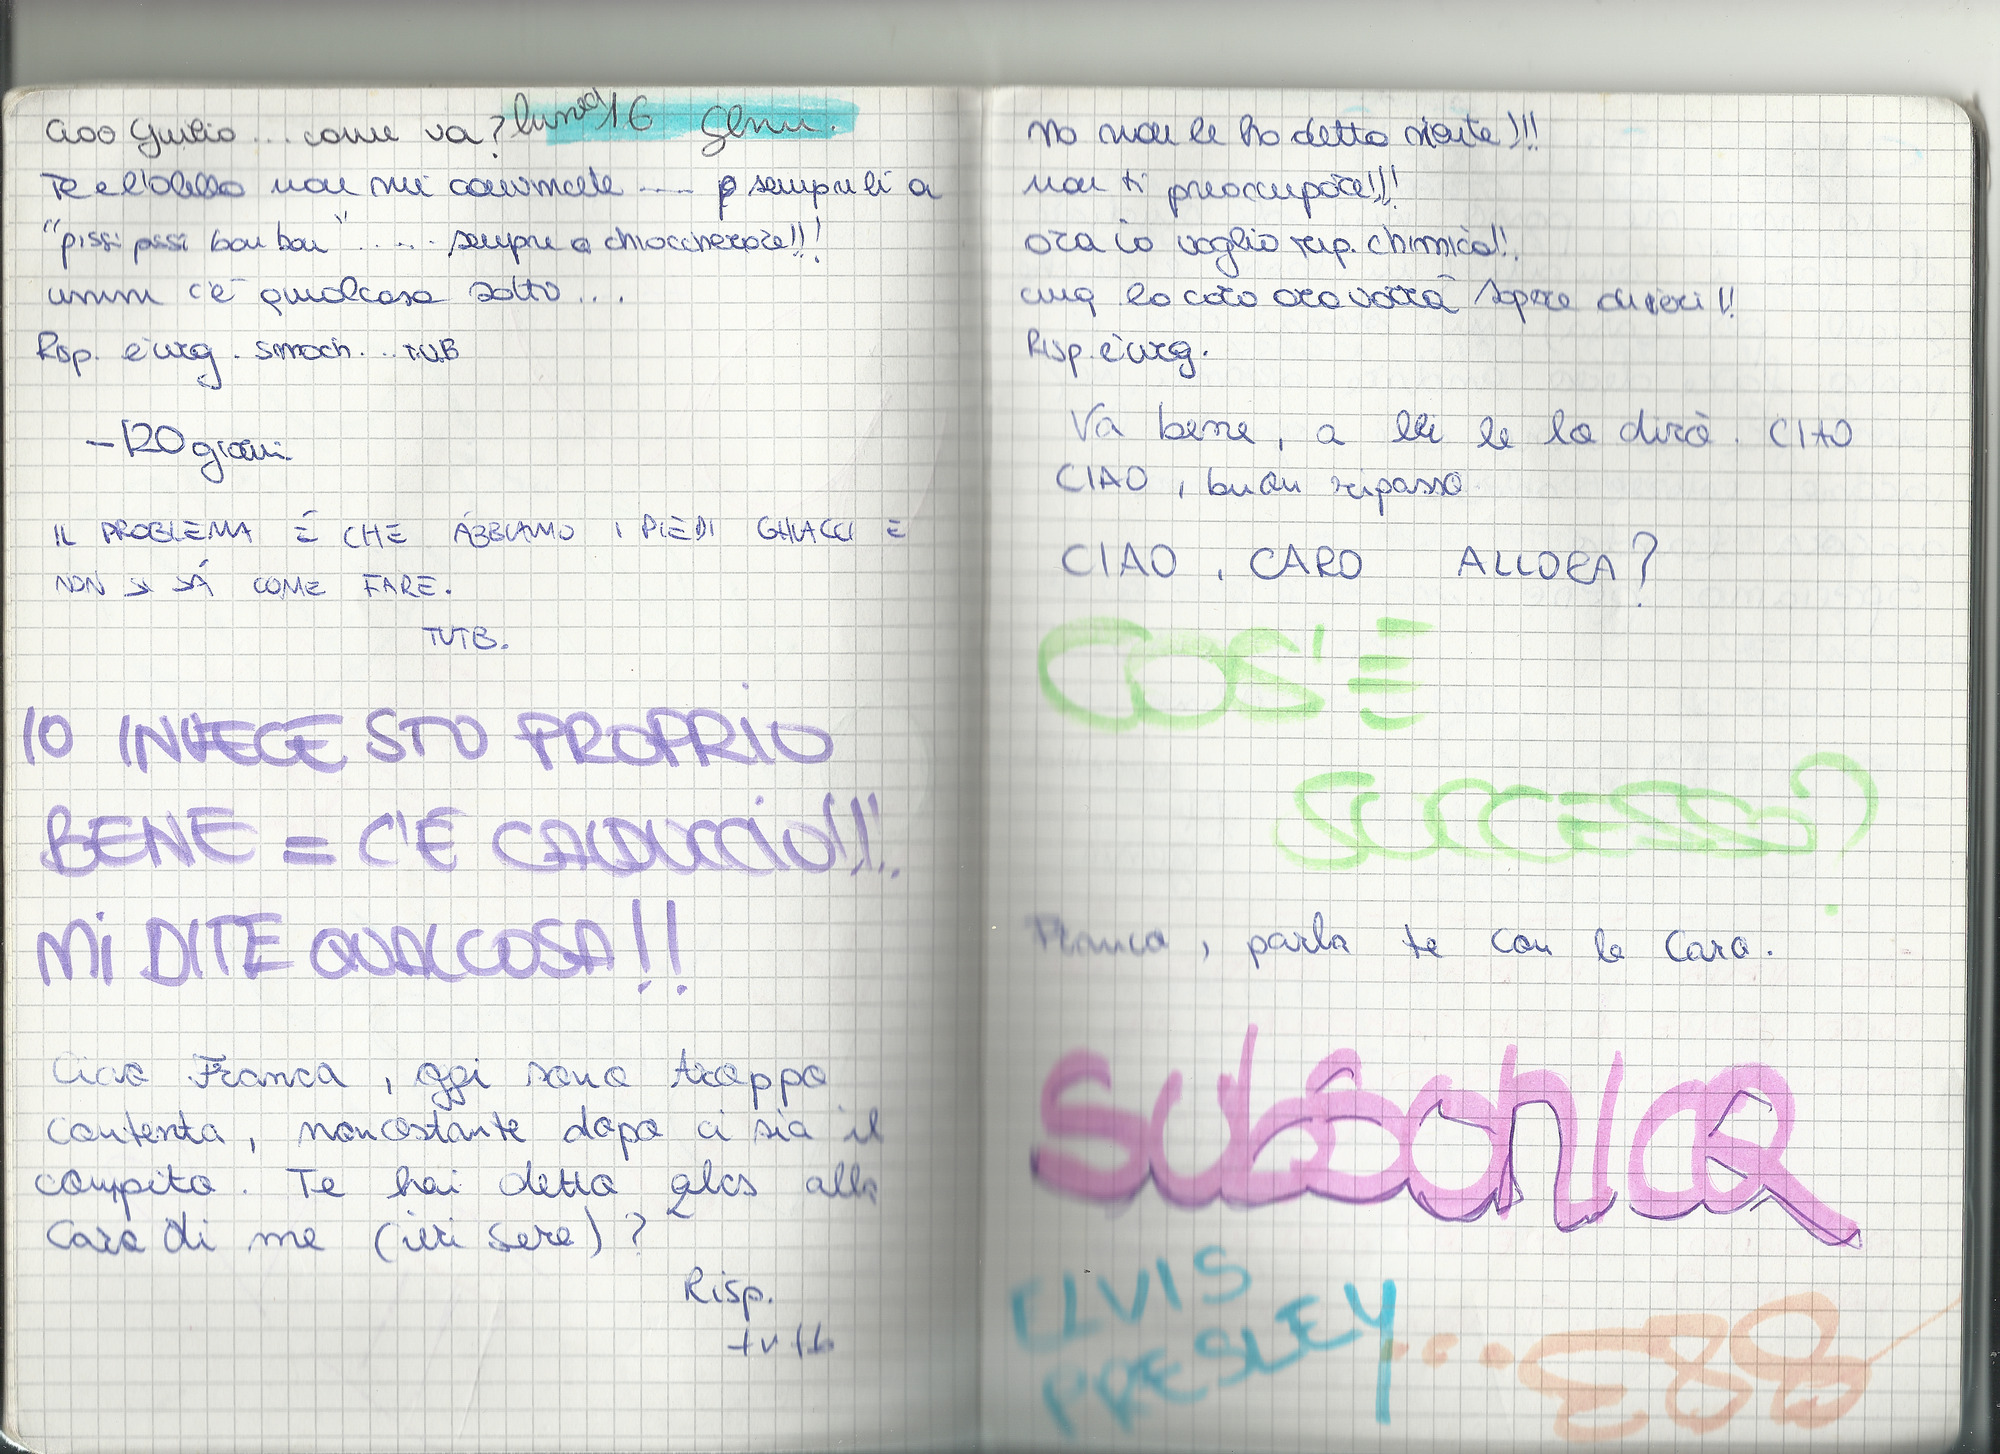 Ciao Giulio... come va? lunedì 16 Genn.
Te e l'olello non mi convincete .... sempre lì a
"pissi pissi bau bau" .... sempre a chiaccherare!!!
umm c'è qualcosa sotto...
Risp. è urg. smach... TVB
-120 giorni
IL PROBLEMA È CHE ABBIAMO I PIEDI GHIACCI E
NON SI SÁ COME FARE.
TVTB.
IO INVECE STO PROPRIO
BENE = C'È CALDUCCIO!!!
MI DITE QUALCOSA!!
Ciao Franca, oggi sono troppo
contenta, nonostante dopo ci sia il
compito. Te hai detto qlcs alla
Cara di me (ieri sera)?
Risp.
tvtb
No non le ho detto niente!!!
non ti preoccupare!!!
ora io voglio rip. chimica!!
cmq la cara ora vorrà sapere di ieri!!
Risp. è urg.
Va bene, a lei le lo dirò. CIAO
CIAO, buon ripasso
CIAO, CARO ALLORA?
COS'È
SUCCESSO?
Franca, parla te con la Cara.
SUBSONICA
ELVIS
PRESLEY...